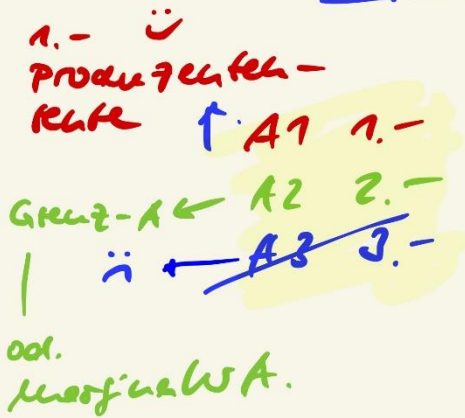 1.- ¨
Produzenten-
rente
↑ A1 1.-
Grenz-A ← A2 2.-
← A3 3.-
od.
marginaler A.